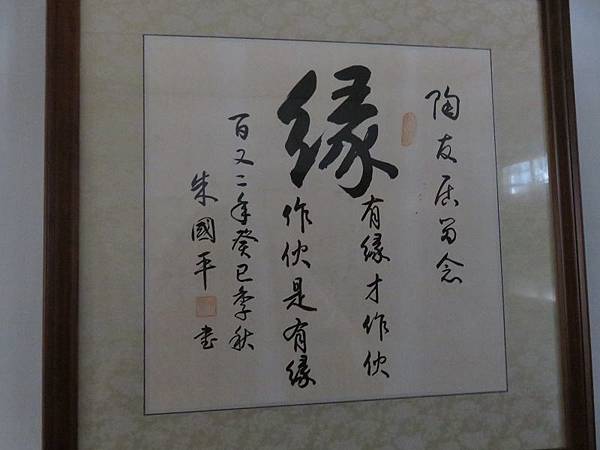 陶友居留念
緣
有緣才作伙
作伙是有緣
百又二年癸巳季秋
朱國平
書